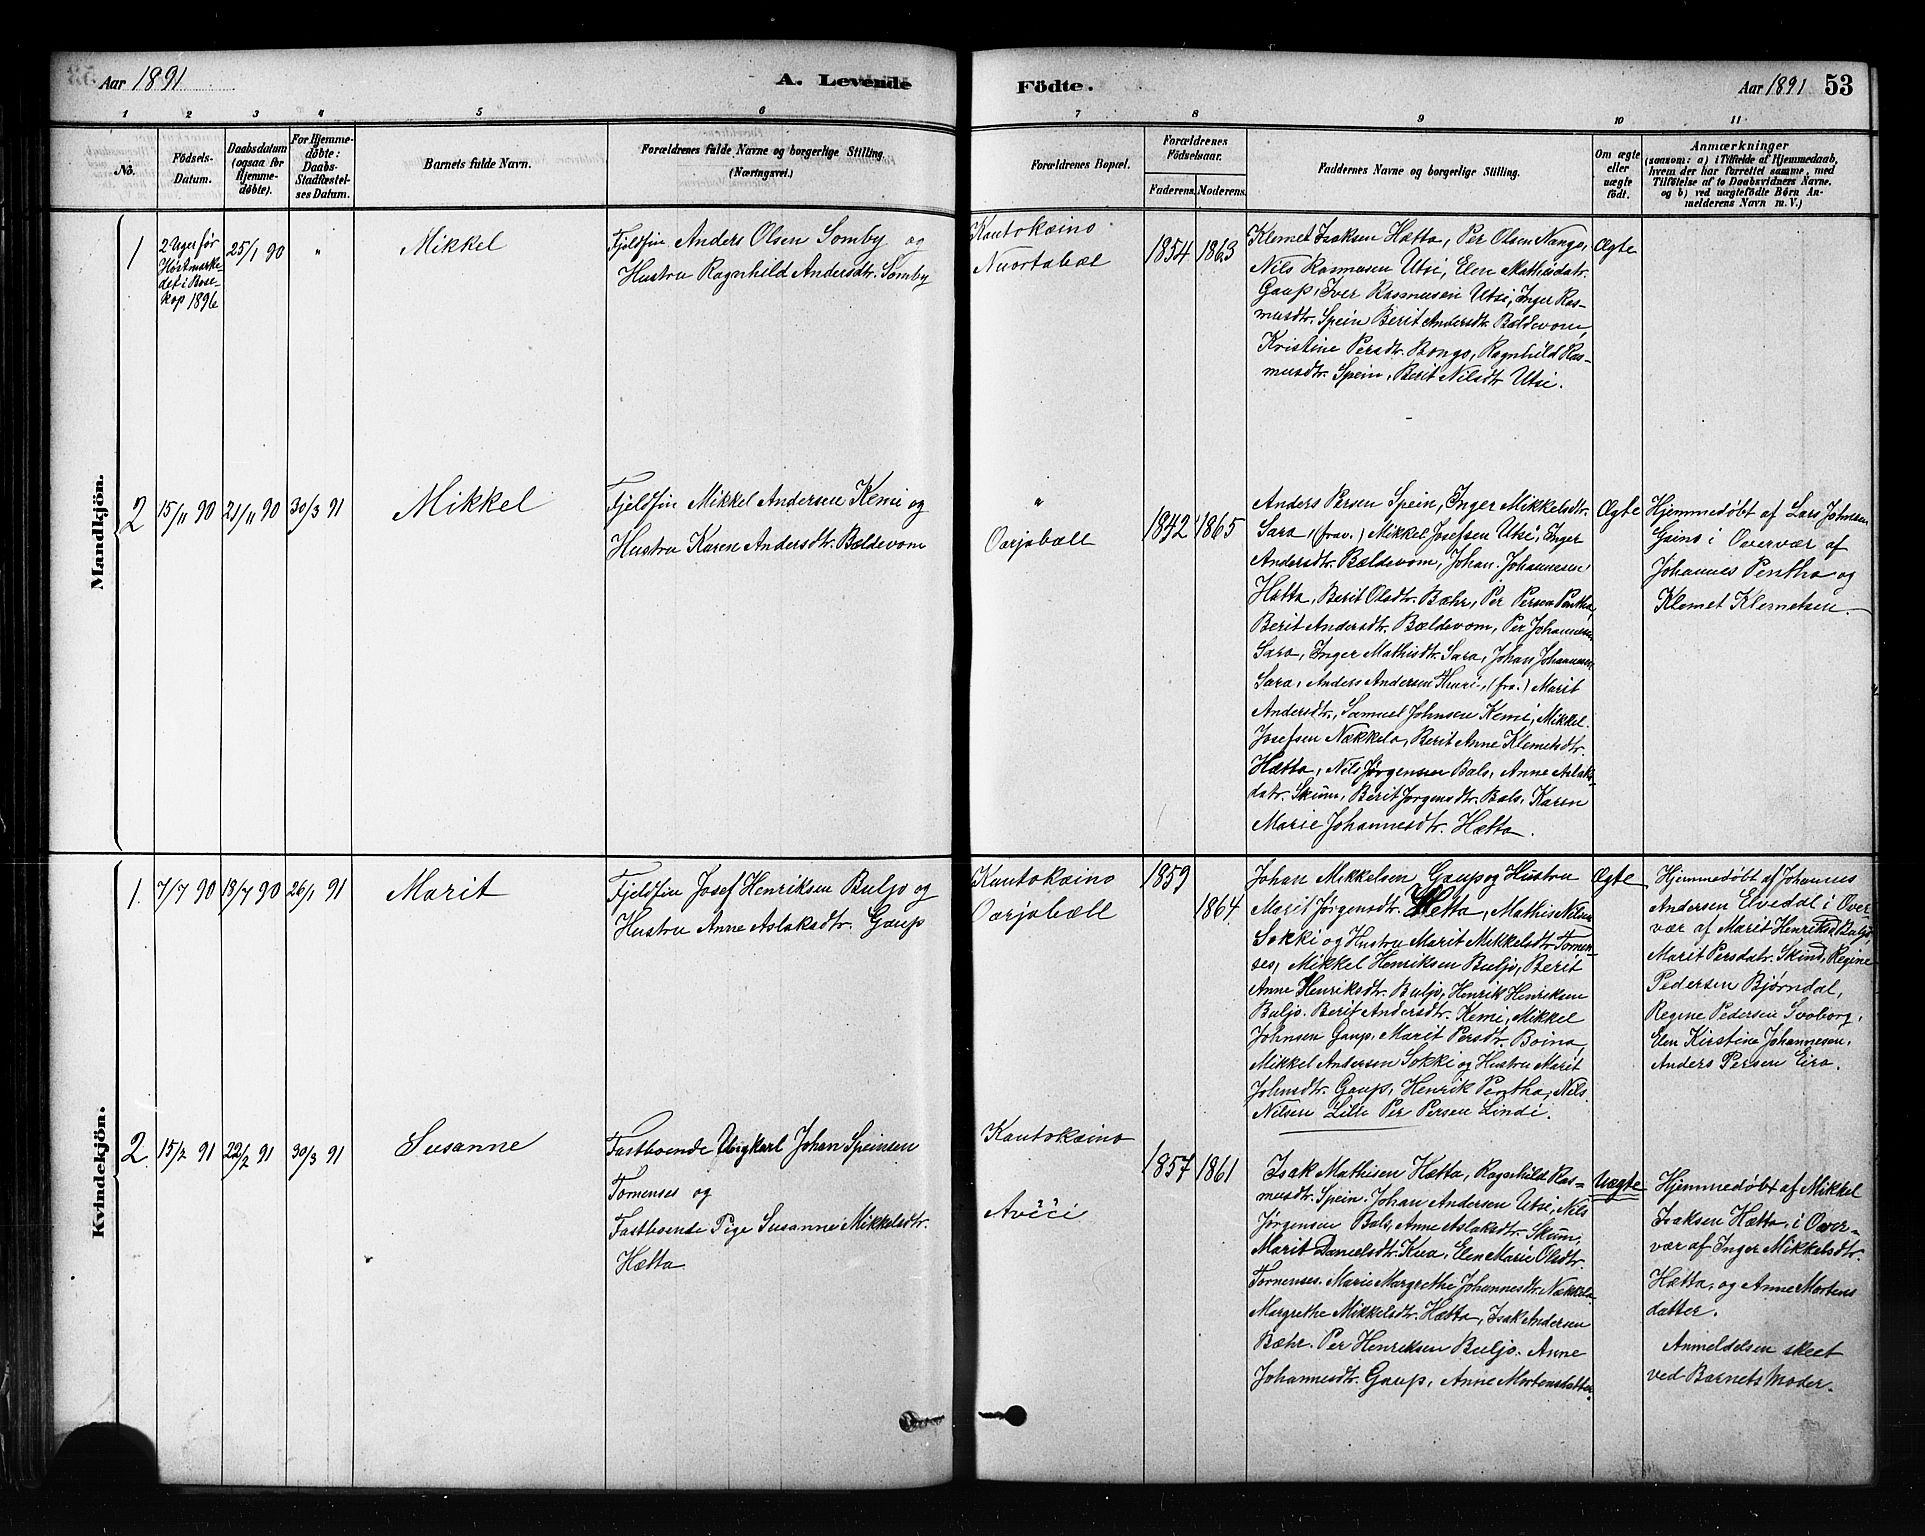 Aar 1891
A. Levende
Födte.
Aar 1891
53
1 2 3 4 5 6 7 8 9 10 11
No.
Födsels-
Datum.
Daabsdatum
(ogsaa for
Hjemme-
döbte).
For Hjemme-
døbte:
Daabs-
Stadfæstel-
ses Datum.
Barnets fulde Navn.
Forældrenes fulde Navne og borgerlige Stilling
(Næringsvei.)
Forældrenes Bopæl.
Forældrenes
Födselsaar.
Faderens. Moderens.
Faddernes Navne og borgerlige Stilling.
Om ægte
eller
uægte
födt.
Anmærkninger
(saasom: a) i Tilfælde af Hjemmedaab,
hvem der har forrettet samme, med
Tilföielse af to Daabsvidners Navne,
og b) ved uægtefödte Börn An-
melderens Navn m. V.)
Mandkjön.
1
2 Uger før
Høstmarke-
det i Bose-
kop 1896
25/1 90
"
Mikkel
Fjeldfin Anders Olsen Somby og
Hustru Ragnhild Andersdtr. Somby
Kautokæino
Nuortabæl
1854
1863
Klemet Isaksen Hætta, Per Olsen Nango,
Nils Rasmusen Utsi, Elen Mathisdatr.
Gaup, Iver Rasmusen Utsi, Inger Ras-
musdtr. Spein Berit Andersdtr. Bældevom,
Kristine Persdtr. Bongo, Ragnhild Ras-
musdtr. Spein, Berit Nilsdtr Utsi.
Ægte
2
15/11 90
21/11 90
30/3 91
Mikkel
Fjeldfin Mikkel Andersen Kemi og
Hustru Karen Andersdtr. Bældevom
"
Oarjabæll
1842
1865
Anders Persen Spein, Inger Mikkelsdtr.
Sara, (frav.) Mikkel Josefsen Utsi, Inger
Andersdtr. Bældevom, Johan Johannesen
Hætta, Berit Olsdtr. Bæhr, Per Persen Pentha,
Berit Andersdtr. Bældevom, Per Johannesen
Sara, Inger Mathisdtr. Sara, Johan Johannesen
Sara, Anders Andersen, (fra.) Marit
Andersdtr., Samuel Johnsen Kemi, Mikkel
Josefsen Nækkela, Berit Anne Klemetsdtr.
Hætta, Nils Jørgensen Bals, Anne Aslaks-
datr. Skum, Berit Jørgensdtr. Bals, Karen
Marie Johannesdtr. Hætta.
Ægte
Hjemmedøbt af Lars Johnsen
Gaino i Overvær af
Johannes Pentha og
Klemet Klemetsen.
Kvindekjön.
1.
7/7 90
13/7 90
26/1 91
Marit
Fjeldfin Josef Henriksen Buljo og
Hustru Anne Aslaksdtr. Gaup
Kautokæino
Oarjabæll
1859
1864
Johan Mikkelsen Gaup og Hustru
Marit Jørgensdtr. Hætta, Mathis Nilsen
Sokki og Hustru Marit Mikkelsdtr Tornen-
ses, Mikkel Henriksen Buljo, Berit
Anne Henriksdtr. Buljo, Henrik Henriksen
Buljo. Berit Andersdtr. Kemi, Mikkel
Johnsen Gaup, Marit Persdtr. Boine,
Mikkel Andersen Sokki og Hustru Marit
Johnsdtr. Gaup, Henrik Pentha, Nils
Nilsen Lile Per Persen Lindi.
Ægte
Hjemmedøbt af Johannes
Andersen Elvedal i Over-
vær af Marit Henriksd Buljo,
Marit Persdatr. Skind, Regine
Pedersen Bjørndal,
Regine Pedersen Svoborg,
Elen Kirstine Johannesen,
Anders Persen Eira.
2.
15/2 91
22/2 91
30/3 91
Susanne
Fastboende Ungkarl Johan Speinsen
Tornenses og
Fastboende Pige Susanne Mikkelsdtr.
Hætta
Kautokæino
Aviči
1857
1861
Isak Mathisen Hætta, Ragnhild Ras-
musdtr. Spein. Johan Andersen Utsi, Nils
Jørgensen Bals, Anne Aslaksdtr. Skum,
Marit Danielsdtr. Kua, Elen Marie Olsdtr.
Tornenses. Marie Margrethe Johannesdtr. Nækkela
Margrethe Mikkelsdtr. Hætta, Isak Andersen
Bæhr. Per Henriksen Buljo. Anne
Johannesdtr. Gaup, Anne Mortensdatter
Uægte
Hjemmedøbt af Mikkel
Isaksen Hætta, i Over-
vær af Inger Mikkelsdtr.
Hætta, og Anne Mortens
datter.
Anmeldelsen skeet
ved Barnets Moder.